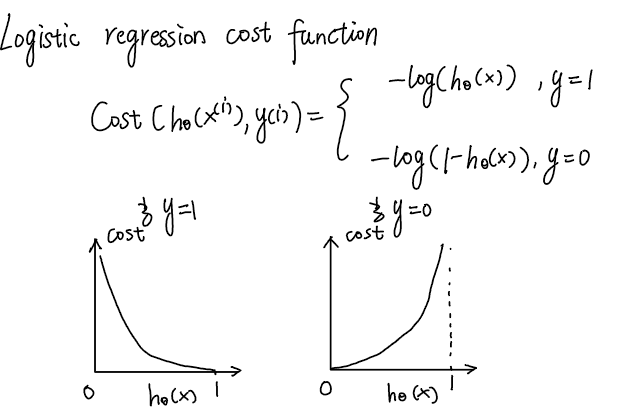 Logistic regression cost function
Cost(hθ(x⁽ⁱ⁾), y⁽ⁱ⁾) = { -log(hθ(x)), y=1
-log(1-hθ(x)), y=0
y=1
cost
0 hθ(x) 1
y=0
cost
0 hθ(x) 1